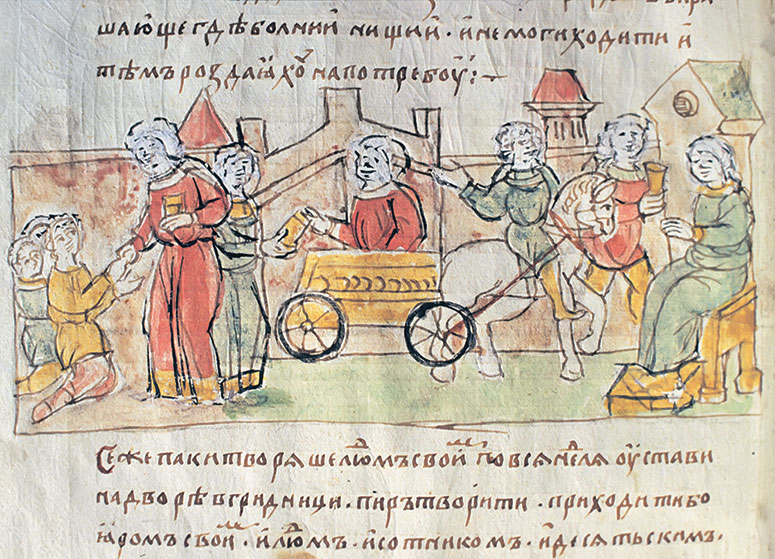 шающе гдѣ болнии нищии · и немоги ходити и
тѣмъ роздаꙗ̈хꙋ̑ на потребоу҃ :~
Се же паки творяше людⷨ҇ъ своиⷨ по вся нлⷣя оустави
на дворѣ в гридници · пиръ творити · приходити бо
ꙗромъ своиⷨ · и людⷨ҇ъ · и сотникомъ · и десятьскимъ ·